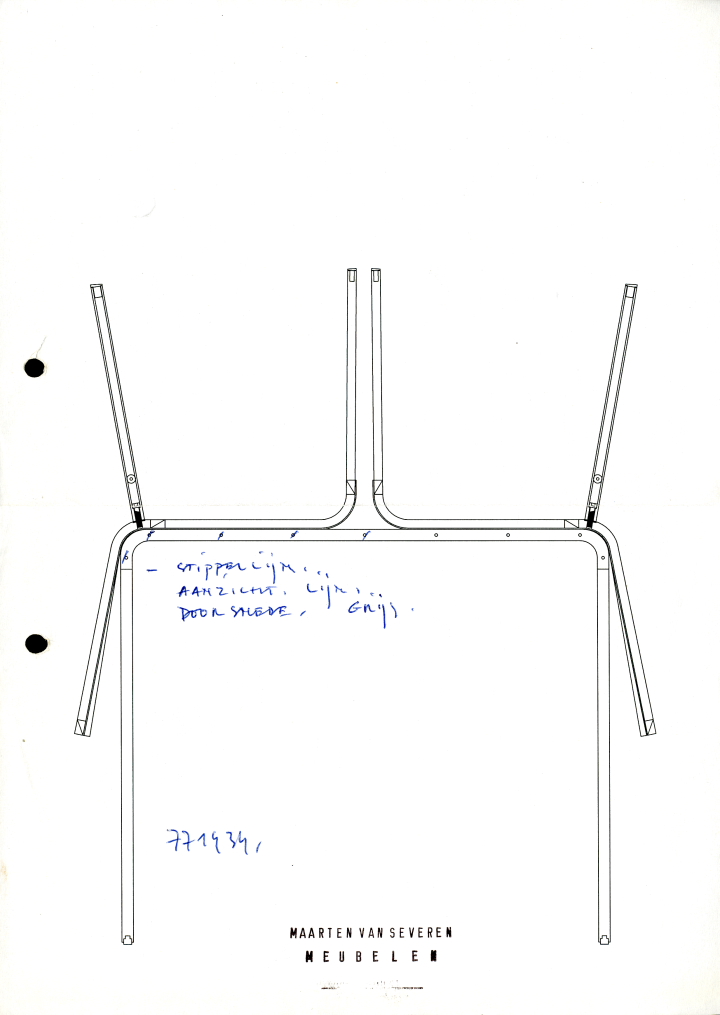 - STIPPELLIJN...
AANZICHT. LIJN...
DOORSNEDE, GRIJS.
771434,
MAARTEN VAN SEVEREN
MEUBELEN